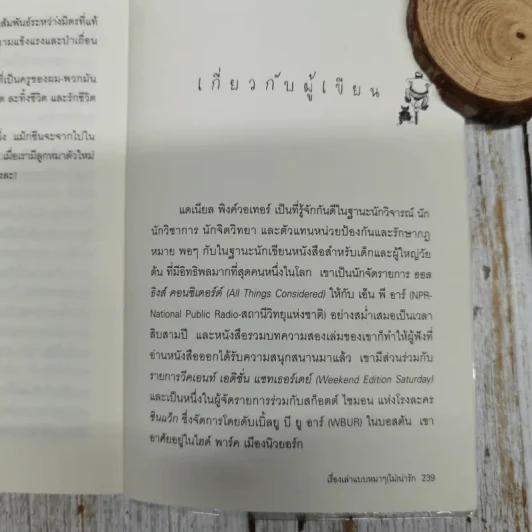 สัมพันธ์ระหว่างมิตรที่แท้
ามแข็งแรงและป่าเถื่อน
ที่เป็นครูของผม-พวกมัน
ละทิ้งชีวิต และรักชีวิต
แม้กซีนจะจากไปใน
เมื่อเรามีลูกหมาตัวใหม่
เกี่ยวกับผู้เขียน
แดเนียล พิงค์วอเทอร์ เป็นที่รู้จักกันดีในฐานะนักวิจารณ์ นัก
นักวิชาการ นักจิตวิทยา และตัวแทนหน่วยป้องกันและรักษากฎ
หมาย พอๆ กับในฐานะนักเขียนหนังสือสำหรับเด็กและผู้ใหญ่วัย
ต้น ที่มีอิทธิพลมากที่สุดคนหนึ่งในโลก เขาเป็นนักจัดรายการ ออล
ธิงส์ คอนซิเดอร์ด์ (All Things Considered) ให้กับ เอ็น พี อาร์ (NPR-
National Public Radio-สถานีวิทยุแห่งชาติ) อย่างสม่ำเสมอเป็นเวลา
สิบสามปี และหนังสือรวมบทความสองเล่มของเขาก็ทำให้ผู้ฟังที่
อ่านหนังสือออกได้รับความสนุกสนานมาแล้ว เขามีส่วนร่วมกับ
รายการวีคเอนท์ เอดิชั่น แซทเธอร์เดย์ (Weekend Edition Saturday)
และเป็นหนึ่งในผู้จัดรายการร่วมกับสก็อตต์ ไซมอน แห่งโรงละคร
ชินแว็ก ซึ่งจัดการโดยดับเบิ้ลยู บี ยู อาร์ (WBUR) ในบอสตัน เขา
อาศัยอยู่ในไฮด์ พาร์ค เมืองนิวยอร์ก
เรื่องเล่าแบบหมาๆ(ไม่น่ารัก 239